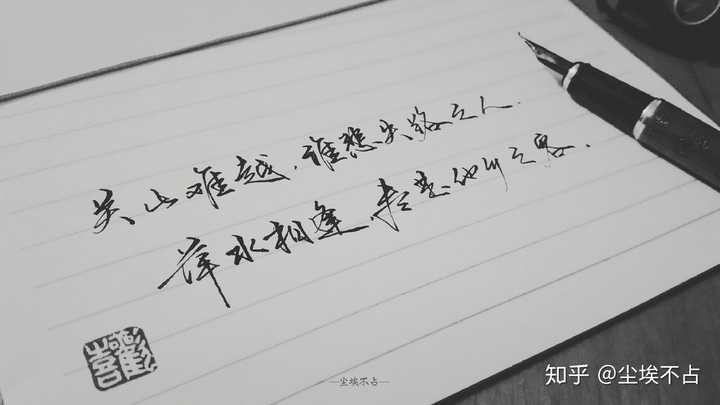 关山难越．谁悲失路之人．
萍水相逢．尽是他乡之客．
歡喜
—尘埃不占—
知乎 @尘埃不占